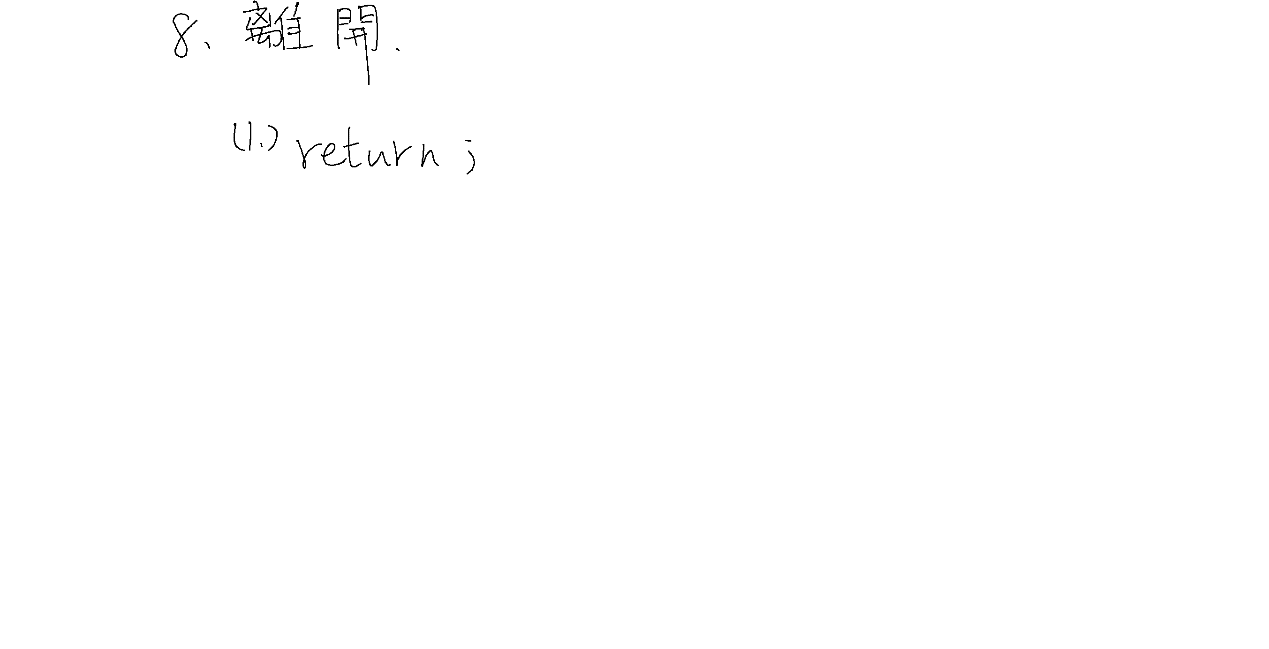 8、離開.
(1.) return ;